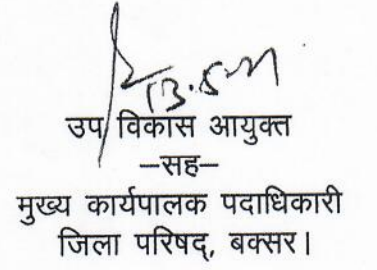 उप विकास आयुक्त
–सह–
मुख्य कार्यपालक पदाधिकारी
जिला परिषद्, बक्सर।